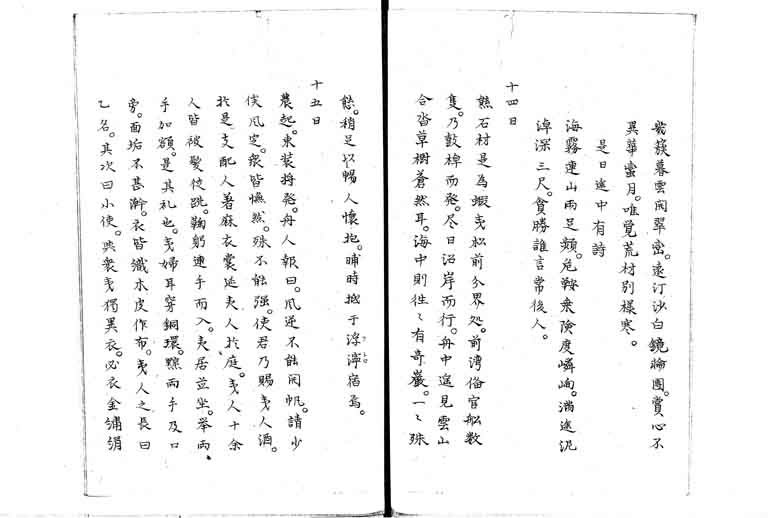 紫蔟暮雲開翠巒。遠汀沙白鏡輪團。賞心不
異華蛮月。唯覚荒村別様寒。
是日途中有詩
海霧連山雨足頻。危鞍乗険度嶙峋。満途泥
淖深三尺。貪勝誰言常後人。
十四日
熊石村是為蝦夷松前分界処。前湾備官船数
隻。乃鼓棹而発。尽日沿岸而行。舟中遥見雲山
合沓草樹蒼然耳。海中則往々有奇巌。一々殊
態。稍足以暢人懐抱。晡時抵于 濘宿焉。
十五日
晨起。束装将発。舟人報曰。風逆不能開帆。請少
俟風定。衆皆憮然。殊不能強。使君乃賜夷人酒。
於是支配人著麻衣裳延夷人於庭。夷人十余
人皆被髪徒跣。鞠躬連手而入。夷居並坐。挙両
手加額。是其礼也。夷婦耳穿銅環。黥両手及口
旁。面垢不甚澣。衣皆織木皮作布。夷人之長曰
乙名。其次曰小使。与衆夷独異衣。必衣金繍絹